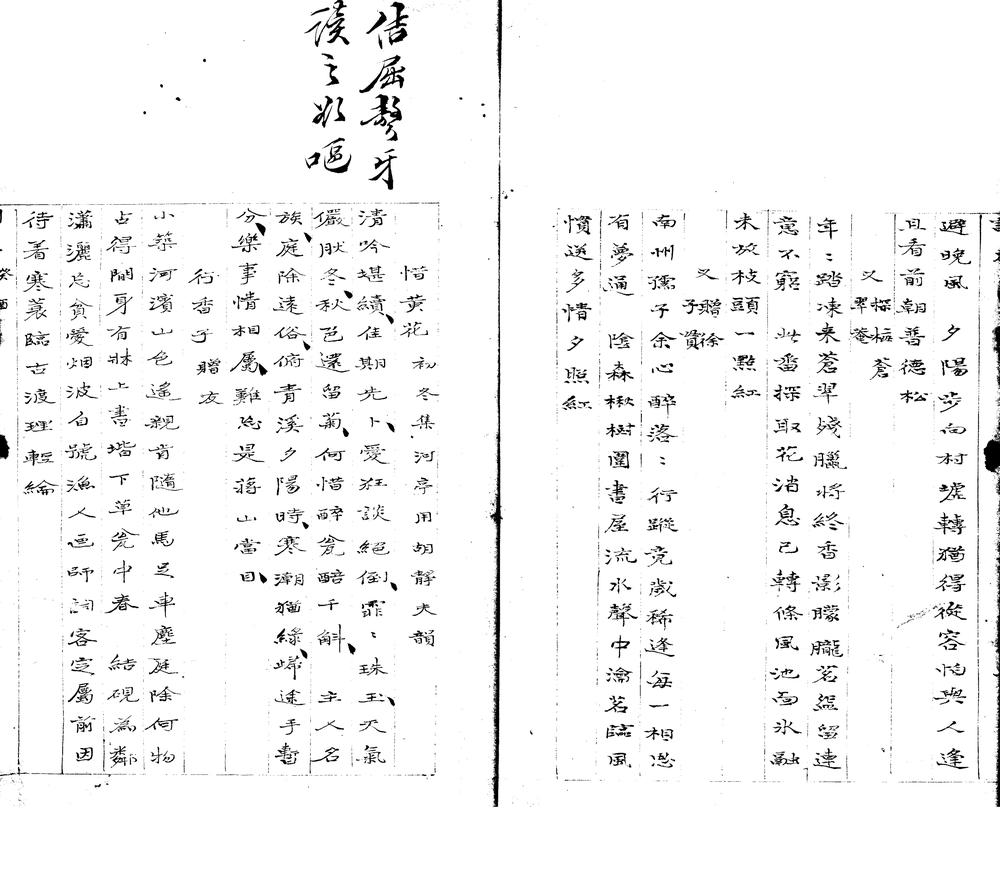 避晚風　夕陽步向村墟轉猶得從容怕與人逢
且看前朝普德松
又　探梅　蒼翠菴
年〻踏凍来蒼翠殘臘將終香影朦朧茗盌留連
意不窮　此番探取花消息已轉條風池面氷融
未放枝頭一點紅
又　贈徐子賓
南州孺子余心醉落〻行蹤竞歲稀逢每一相思
有夢通　陰森楸樹圍書屋流水聲中瀹茗臨風
慣送多情夕照紅
佶屈聱牙
讀之欲嘔
惜黄花　初冬集河亭用胡靜夫韻
清吟堪續佳期先卜愛狂談絕倒霏〻珠玉天氣
儼肰冬秋色還留菊何惜醉瓮醅千斛　主人名
族庭除遠俗俯青溪夕陽時寒潮猶綠歸途手暫
分樂事情相屬難忘是蔣山當目
行香子　贈友
小築河濱山色遙親肯隨他馬足車塵庭除何物
占得閒身有牀上書堦下草瓮中春　結硯為鄰
瀟灑忘貧愛烟波自號漁人画師詞客定屬前因
待着寒蓑臨古渡理輕綸